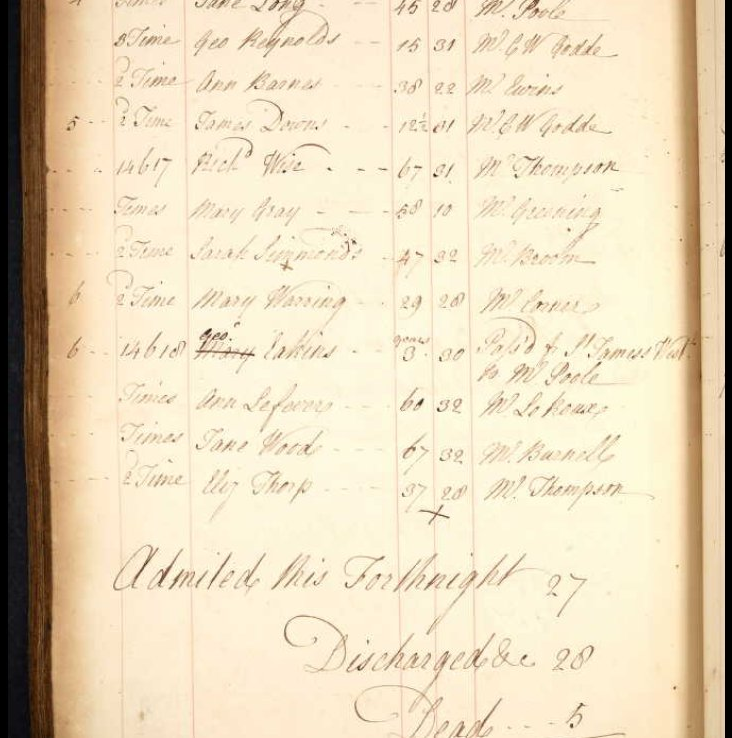 4 Times Jane Long - - 45 28 Mr. Poole
3 Time Geo Reynolds - - 15 31 Mr. C W Godde
2 Time Ann Barnes - - - 38 22 Mr Ewins
5 - - 2 Time James Downs - - 12½ 31 Mr. C W Godde
14617 Richd. Wise - - - 67 31 Mr Thompson
Times Mary Gray - - - 58 10 Mr. Greening
2 Time Sarah Simmonds 47 32 Mr. Broom
6 2 Time Mary Warring - - 29 28 Mr. Corner
6 - - 14618 Geo. Mary Eakins - - - years 3 - 30 Pass'd fr St. James's Westr.
to Mr Poole
Times Ann Lefever - - - 60 32 Mr.
Times Jane Wood - - - 67 32 Mr. Burnell
2 Time Eliz Thorp - - - 37 28 Mr. Thompson
+
Admited this Forthnight 27
Discharged &c 28
Dead - - - 5